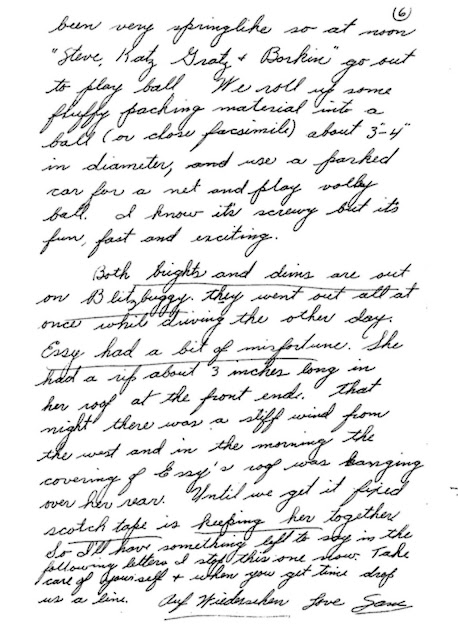 (6)
been very springlike so at noon
"Steve, Katz, Gratz + Borkin" go out
to play ball. We roll up some
fluffy packing material into a
ball (or close facsimile) about 3"-4"
in diameter, and use a parked
car for a net and play volley
ball. I know it's screwy but it's
fun, fast and exciting.
Both brights and dims are out
on Blitzbuggy. they went out all at
once whil driving the other day.
Essy had a bit of misfortune. She
had a rip about 3 inches long in
her roof at the front end. That
night there was a stiff wind from
the west and in the morning the
covering of Essy's roof was hanging
over her rear. Until we get it fixed
scotch tape is keeping her together
So I'll have something left to say in the
following letters I stop this one now. Take
care of yourself + when you get time drop
us a line. Auf Wiedersehen Love